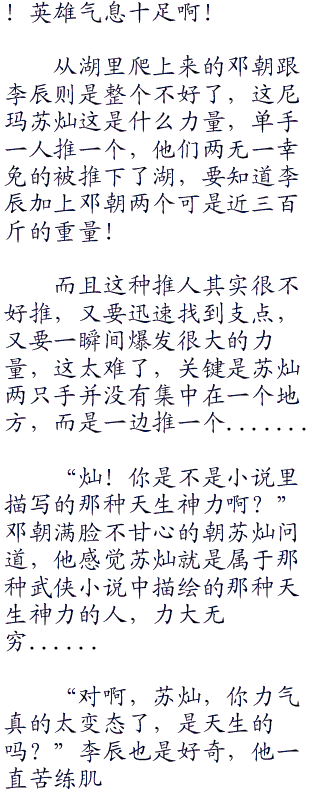 ！英雄气息十足啊！
从湖里爬上来的邓朝跟
李辰则是整个不好了，这尼
玛苏灿这是什么力量，单手
一人推一个，他们两无一幸
免的被推下了湖，要知道李
辰加上邓朝两个可是近三百
斤的重量！
而且这种推人其实很不
好推，又要迅速找到支点，
又要一瞬间爆发很大的力
量，这太难了，关键是苏灿
两只手并没有集中在一个地
方，而是一边推一个.......
“灿！你是不是小说里
描写的那种天生神力啊？”
邓朝满脸不甘心的朝苏灿问
道，他感觉苏灿就是属于那
种武侠小说中描绘的那种天
生神力的人，力大无
穷......
“对啊，苏灿，你力气
真的太变态了，是天生的
吗？”李辰也是好奇，他一
直苦练肌